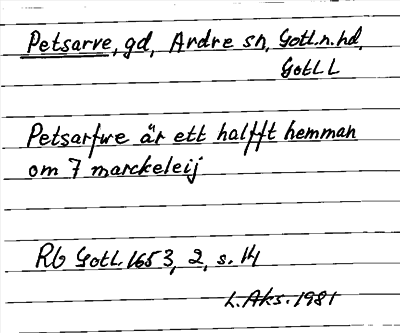 Petsarve, gd, Ardre sn, Gotl.n.hd,
Gotl L
Petsarfwe är ett halfft hemman
om 7 marckeleij
Rb Gotl. 1653, 2, s. 14
L. Aks. 1981